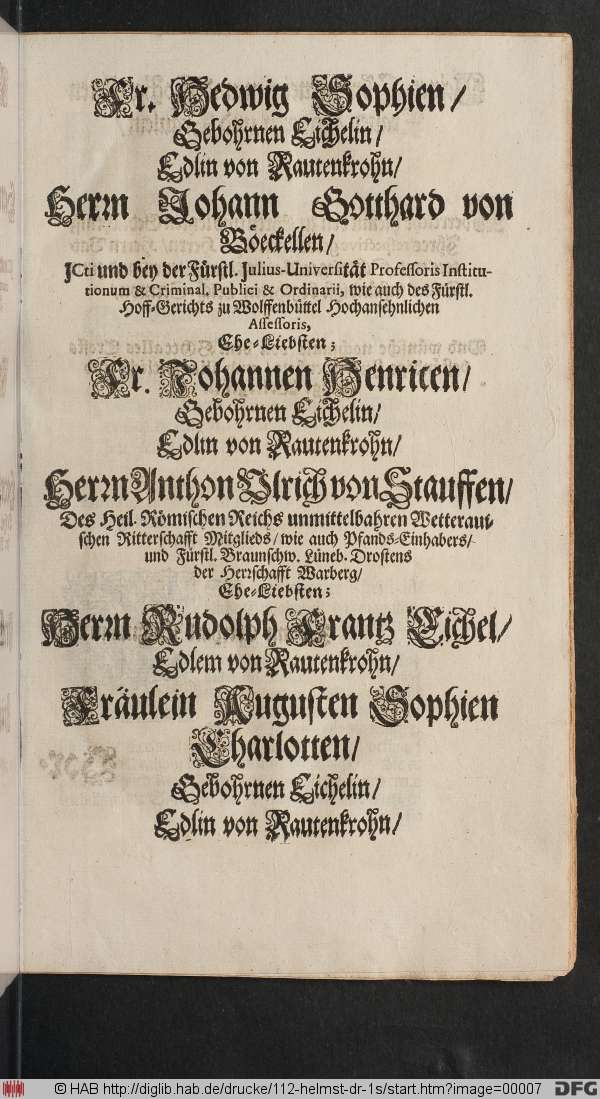 Fr. Hedwig Sophien/
Gebohrnen Eichelin/
Edlin von Rautenkrohn/
Herrn Johann Gotthard von
Böeckellen/
JCti und bey der Fürstl. Julius-Universität Professoris Institu-
tionum & Criminal. Publici & Ordinarii, wie auch des Fürstl.
Hoff-Gerichts zu Wolffenbüttel Hochansehnlichen
Assessoris,
Ehe-Liebsten;
Fr. Johannen Henrieten/
Gebohrnen Eichelin/
Edlin von Rautenkrohn/
Herrn Anthon Ulrich von Stauffen/
Des Heil. Römischen Reichs unmittelbahren Wetteraui-
schen Ritterschafft Mitglieds/ wie auch Pfands-Einhabers/
und Fürstl. Braunschw. Lüneb. Drostens
der Herrschafft Warberg/
Ehe-Liebsten;
Herrn Rudolph Frantz Eichel/
Edlem von Rautenkrohn/
Fräulein Augusten Sophien
Charlotten/
Gebohrnen Eichelin/
Edlin von Rautenkrohn/
© HAB http://diglib.hab.de/drucke/112-helmst-dr-1s/start.htm?image=00007
DFG